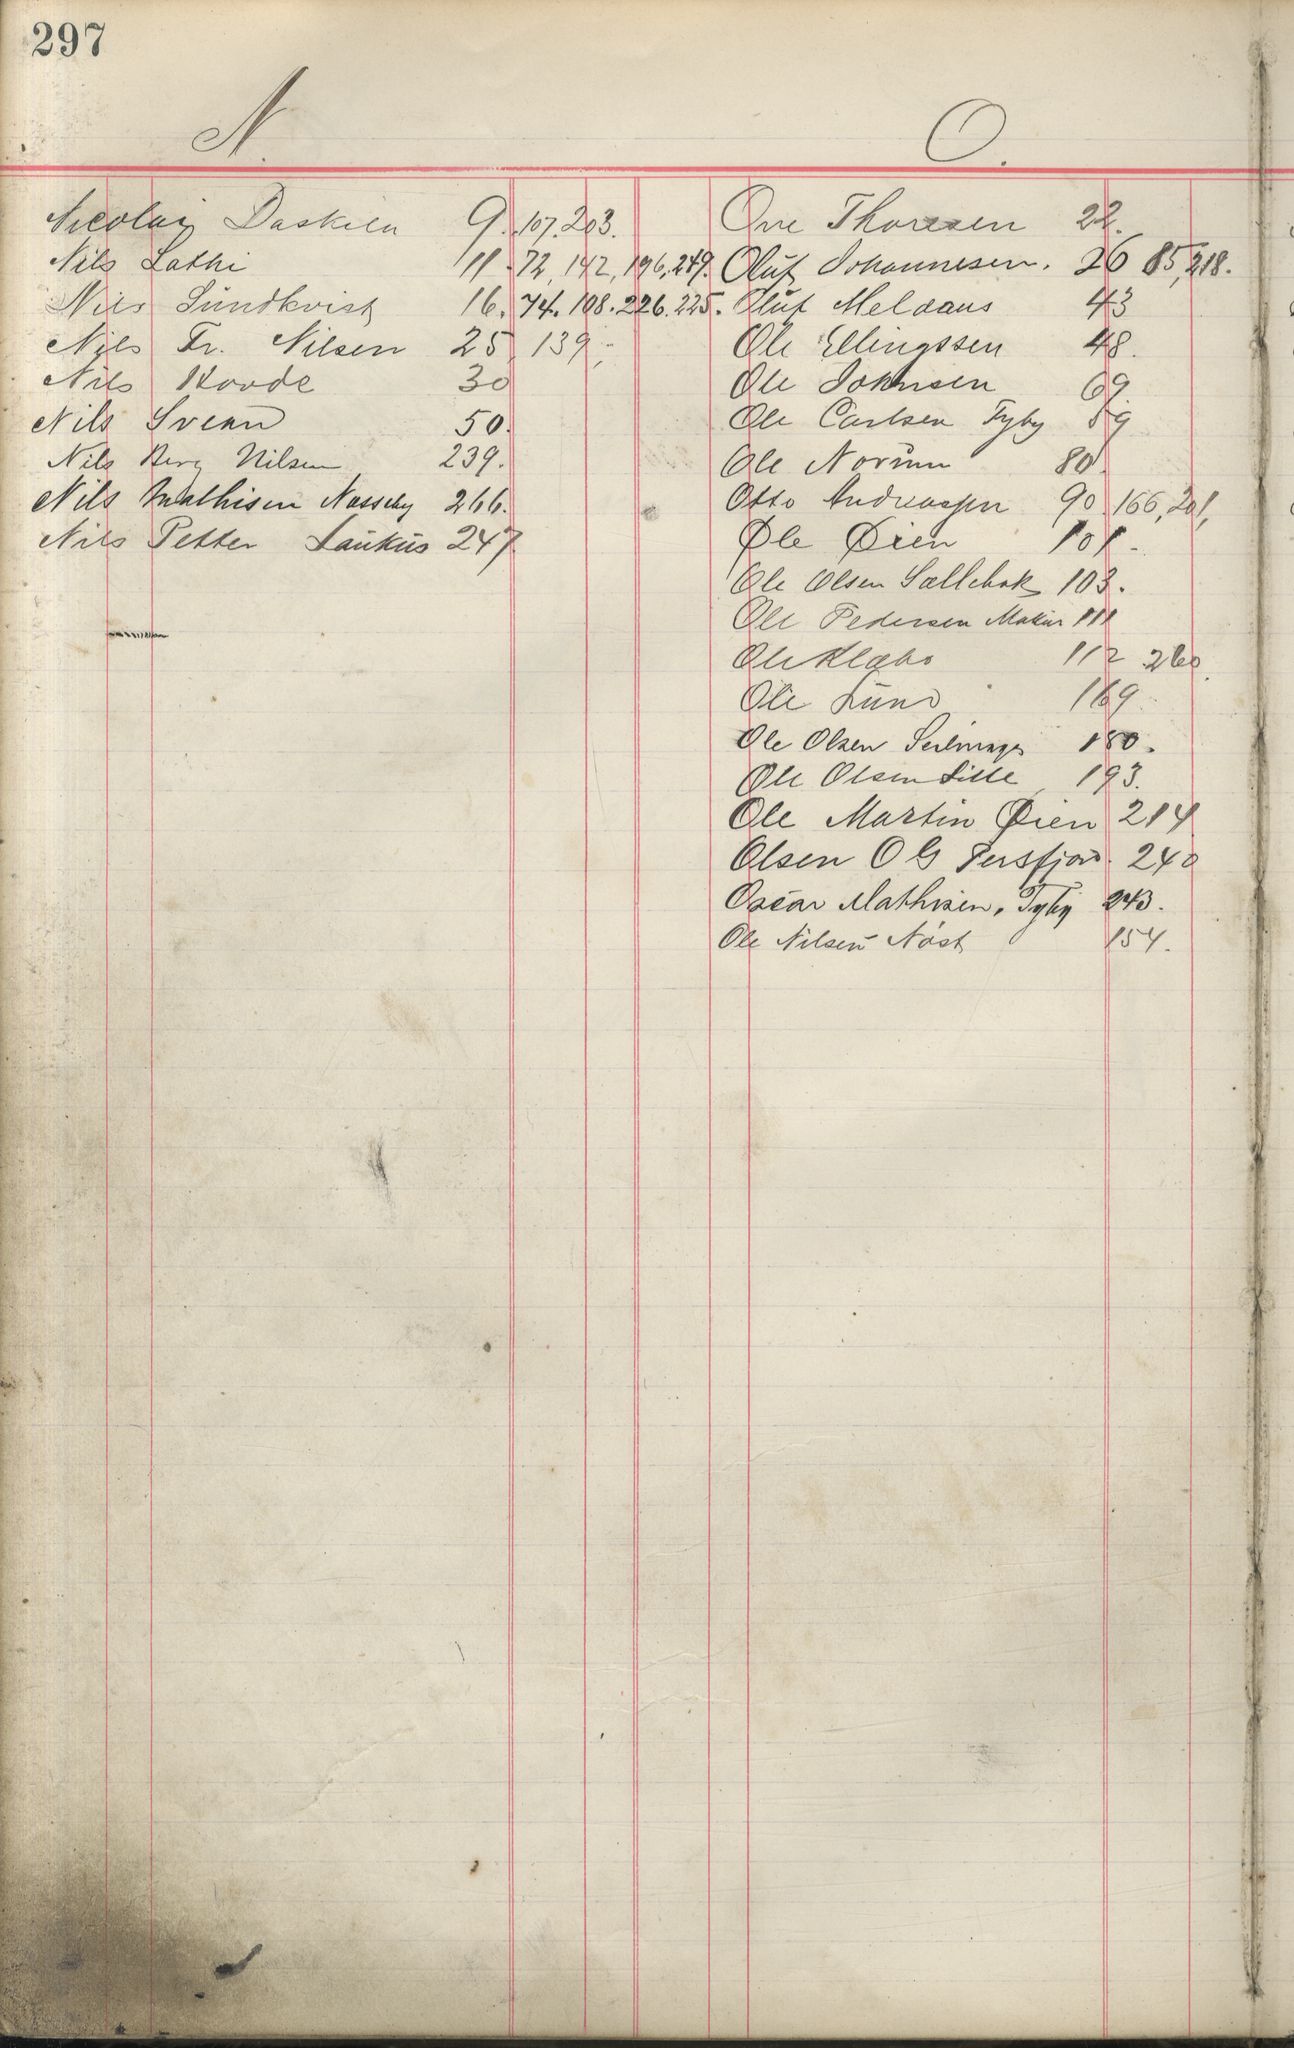 297
N.
Nicolai Daskila 9. 107. 203.
Nils Lathi 11. 72, 142, 196, 249.
Nils Sündkvist 16. 74. 108. 226. 225.
Nils Fr. Nilsen 25 139
Nils Hovde 30
Nils Svenn 50.
Nils Berg Nilsen 239.
Nils Mathisen Nasseby 266.
Nils Petter Laukus 247
O.
Ove Thoresen 22.
Oluf Johannesen. 26 85, 218.
Oluf Meldaus 43
Ole Ellingssen 48.
Ole Johnsen 69
Ole Carlsen Tyby 89
Ole Norum 80.
Otto Andreassen 90. 166, 201,
Ole Øien 101.
Ole Olsen 103.
Ole Pedersen Makur 111
Ole Klæbo 112 260.
Ole Lund 169
Ole Olsen 180.
Ole Olsen Lille 193.
Ole Martin Øien 214
Olsen O G Persfjord. 240
Oscar Mathisen, Tyby 243.
Ole Nilsen Nøst 154.